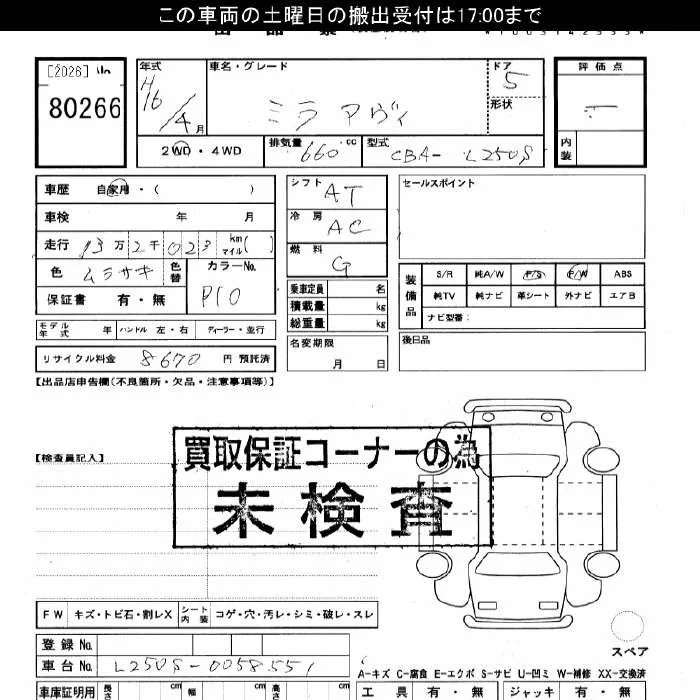 この車両の土曜日の搬出受付は17:00まで
[2026]
80266
年式
H16/4月
車名・グレード
ミラ アヴィ
ドア
5
形状
評価点
内装
2WD・4WD
排気量
660 cc
型式
CBA- L250S
車歴 自家用・( )
車検 年 月
走行 13万2千023 km マイル( )
色 ムラサキ 色替
カラーNo.
P10
保証書 有・無
シフト
AT
冷房
AC
燃料
G
乗車定員 名
積載量 kg
総重量 kg
名変期限
月 日
セールスポイント
装備品
S/R 純A/W P/S P/W ABS
純TV 純ナビ 革シート 外ナビ エアB
ナビ型番:
後日品
モデル年式 年 ハンドル 左・右 ディーラー・並行
リサイクル料金 8670 円 預託済
【出品店申告欄(不良箇所・欠品・注意事項等)】
【検査員記入】
買取保証コーナーの為
未検査
FW キズ・トビ石・割レX シート内装 コゲ・穴・汚レ・シミ・破レ・スレ
登録No.
車台No. L250S-0058551
スペア
A-キズ C-腐食 E-エクボ S-サビ U-凹ミ W-補修 XX-交換済
車庫証明用 長さ cm 幅 cm 高さ cm
工具 有・無 ジャッキ 有・無